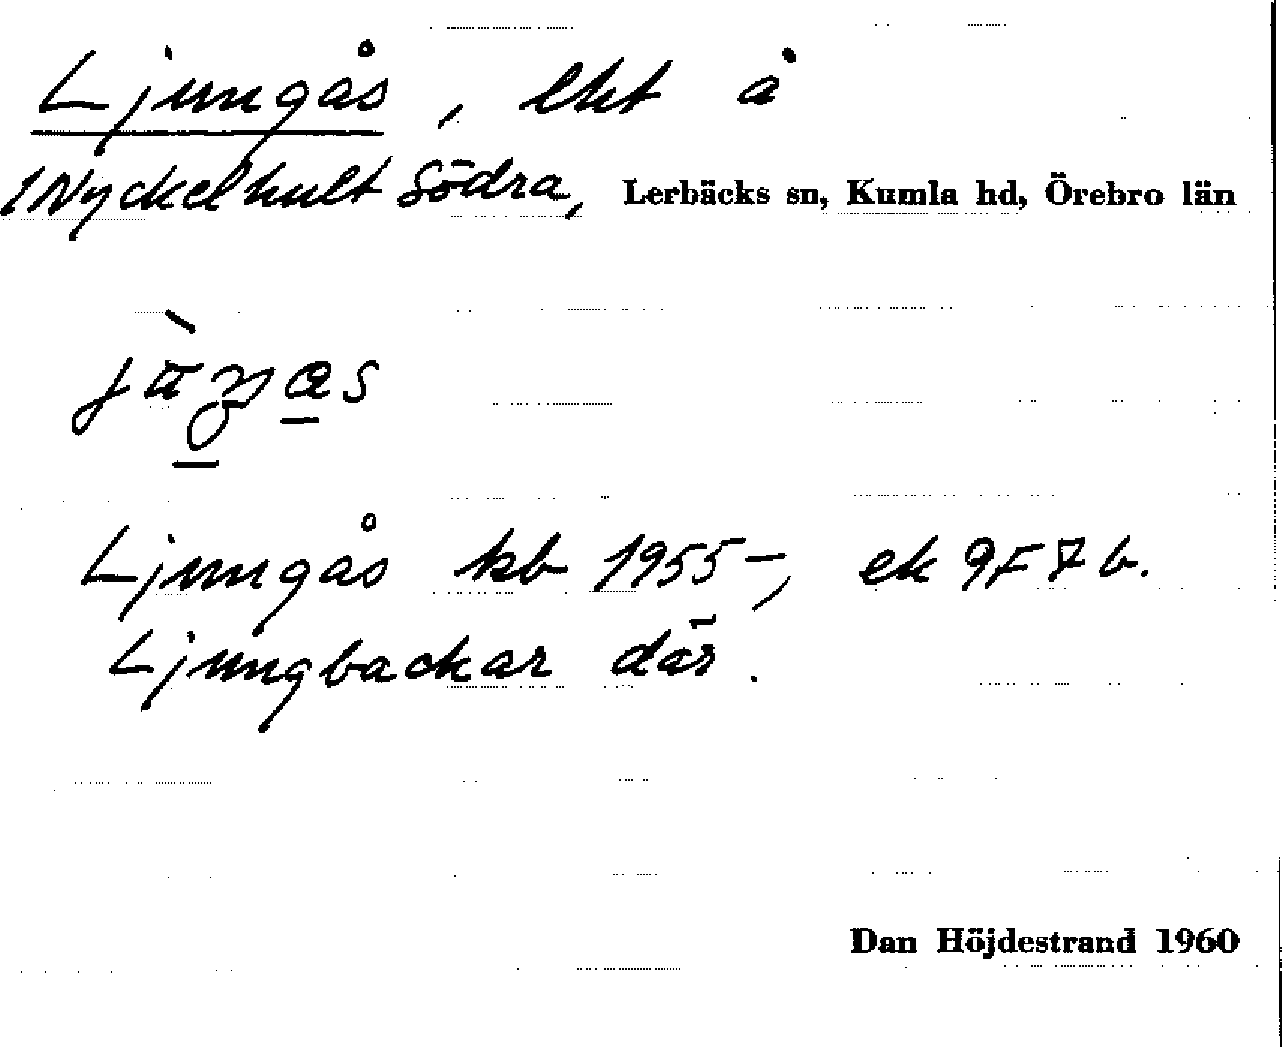 Ljungås, lht å
1 Nyckelhult Södra, Lerbäcks sn, Kumla hd, Örebro län
Ljungås kb 1955-, ek 9F7b.
Ljungbackar där.
Dan Höjdestrand 1960